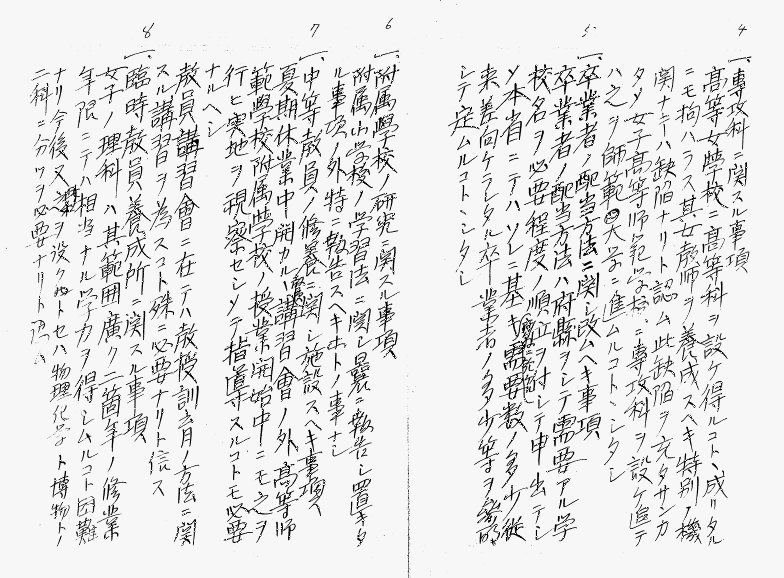 4
一、専攻科ニ関スル事項
高等女学校ニ高等科ヲ設ケ得ルコトヽ成リタル
ニモ拘ハラス其女教師ヲ養成スヘキ特別ノ機
関ナキハ缺陥ナリト認ム此缺陥ヲ充タサンカ
タメ女子高等師範学校ニ専攻科ヲ設ケ追テ
ハ之ヲ師範大学ニ進ムルコトヽシタシ
5
一、卒業者ノ配当方法ニ関シ改ムヘキ事項
卒業者ノ配当方法ハ府縣ヲシテ需要アル学
校名ヲ必要程度ノ順位ヲ付シテ申出テシ
メ本省ニテハソレニ基キ需要数ノ多少従
来差向ケラレタル卒業者ノ多少等ヲ
シテ定ムルコトヽシタシ
6
一、附属学校ノ研究ニ関スル事項
附属小学校ノ学習法ニ関シ曩ニ報告シ置キタ
ル事項ノ外特ニ報告スヘキホトノ事ナシ
7
一、中等教員ノ修養ニ関シ施設スヘキ事項
夏期休業中開カルヽ講習會ノ外高等師
範学校附属学校ノ授業開始中ニモ之ヲ
行ヒ実地ヲ視察セシメテ指導スルコトモ必要
ナルヘシ
教員講習會ニ在テハ教授訓育ノ方法ニ関
スル講習ヲ為スコト殊ニ必要ナリト信ス
8
一、臨時教員養成所ニ関スル事項
女子ノ理科ハ其範囲廣ク二箇年ノ修業
年限ニテハ相当ナル学力ヲ得シムルコト困難
ナリ今後又ヲ設クトセハ物理化学ト博物トノ
二科ニ分ツヲ必要ナリト認ム